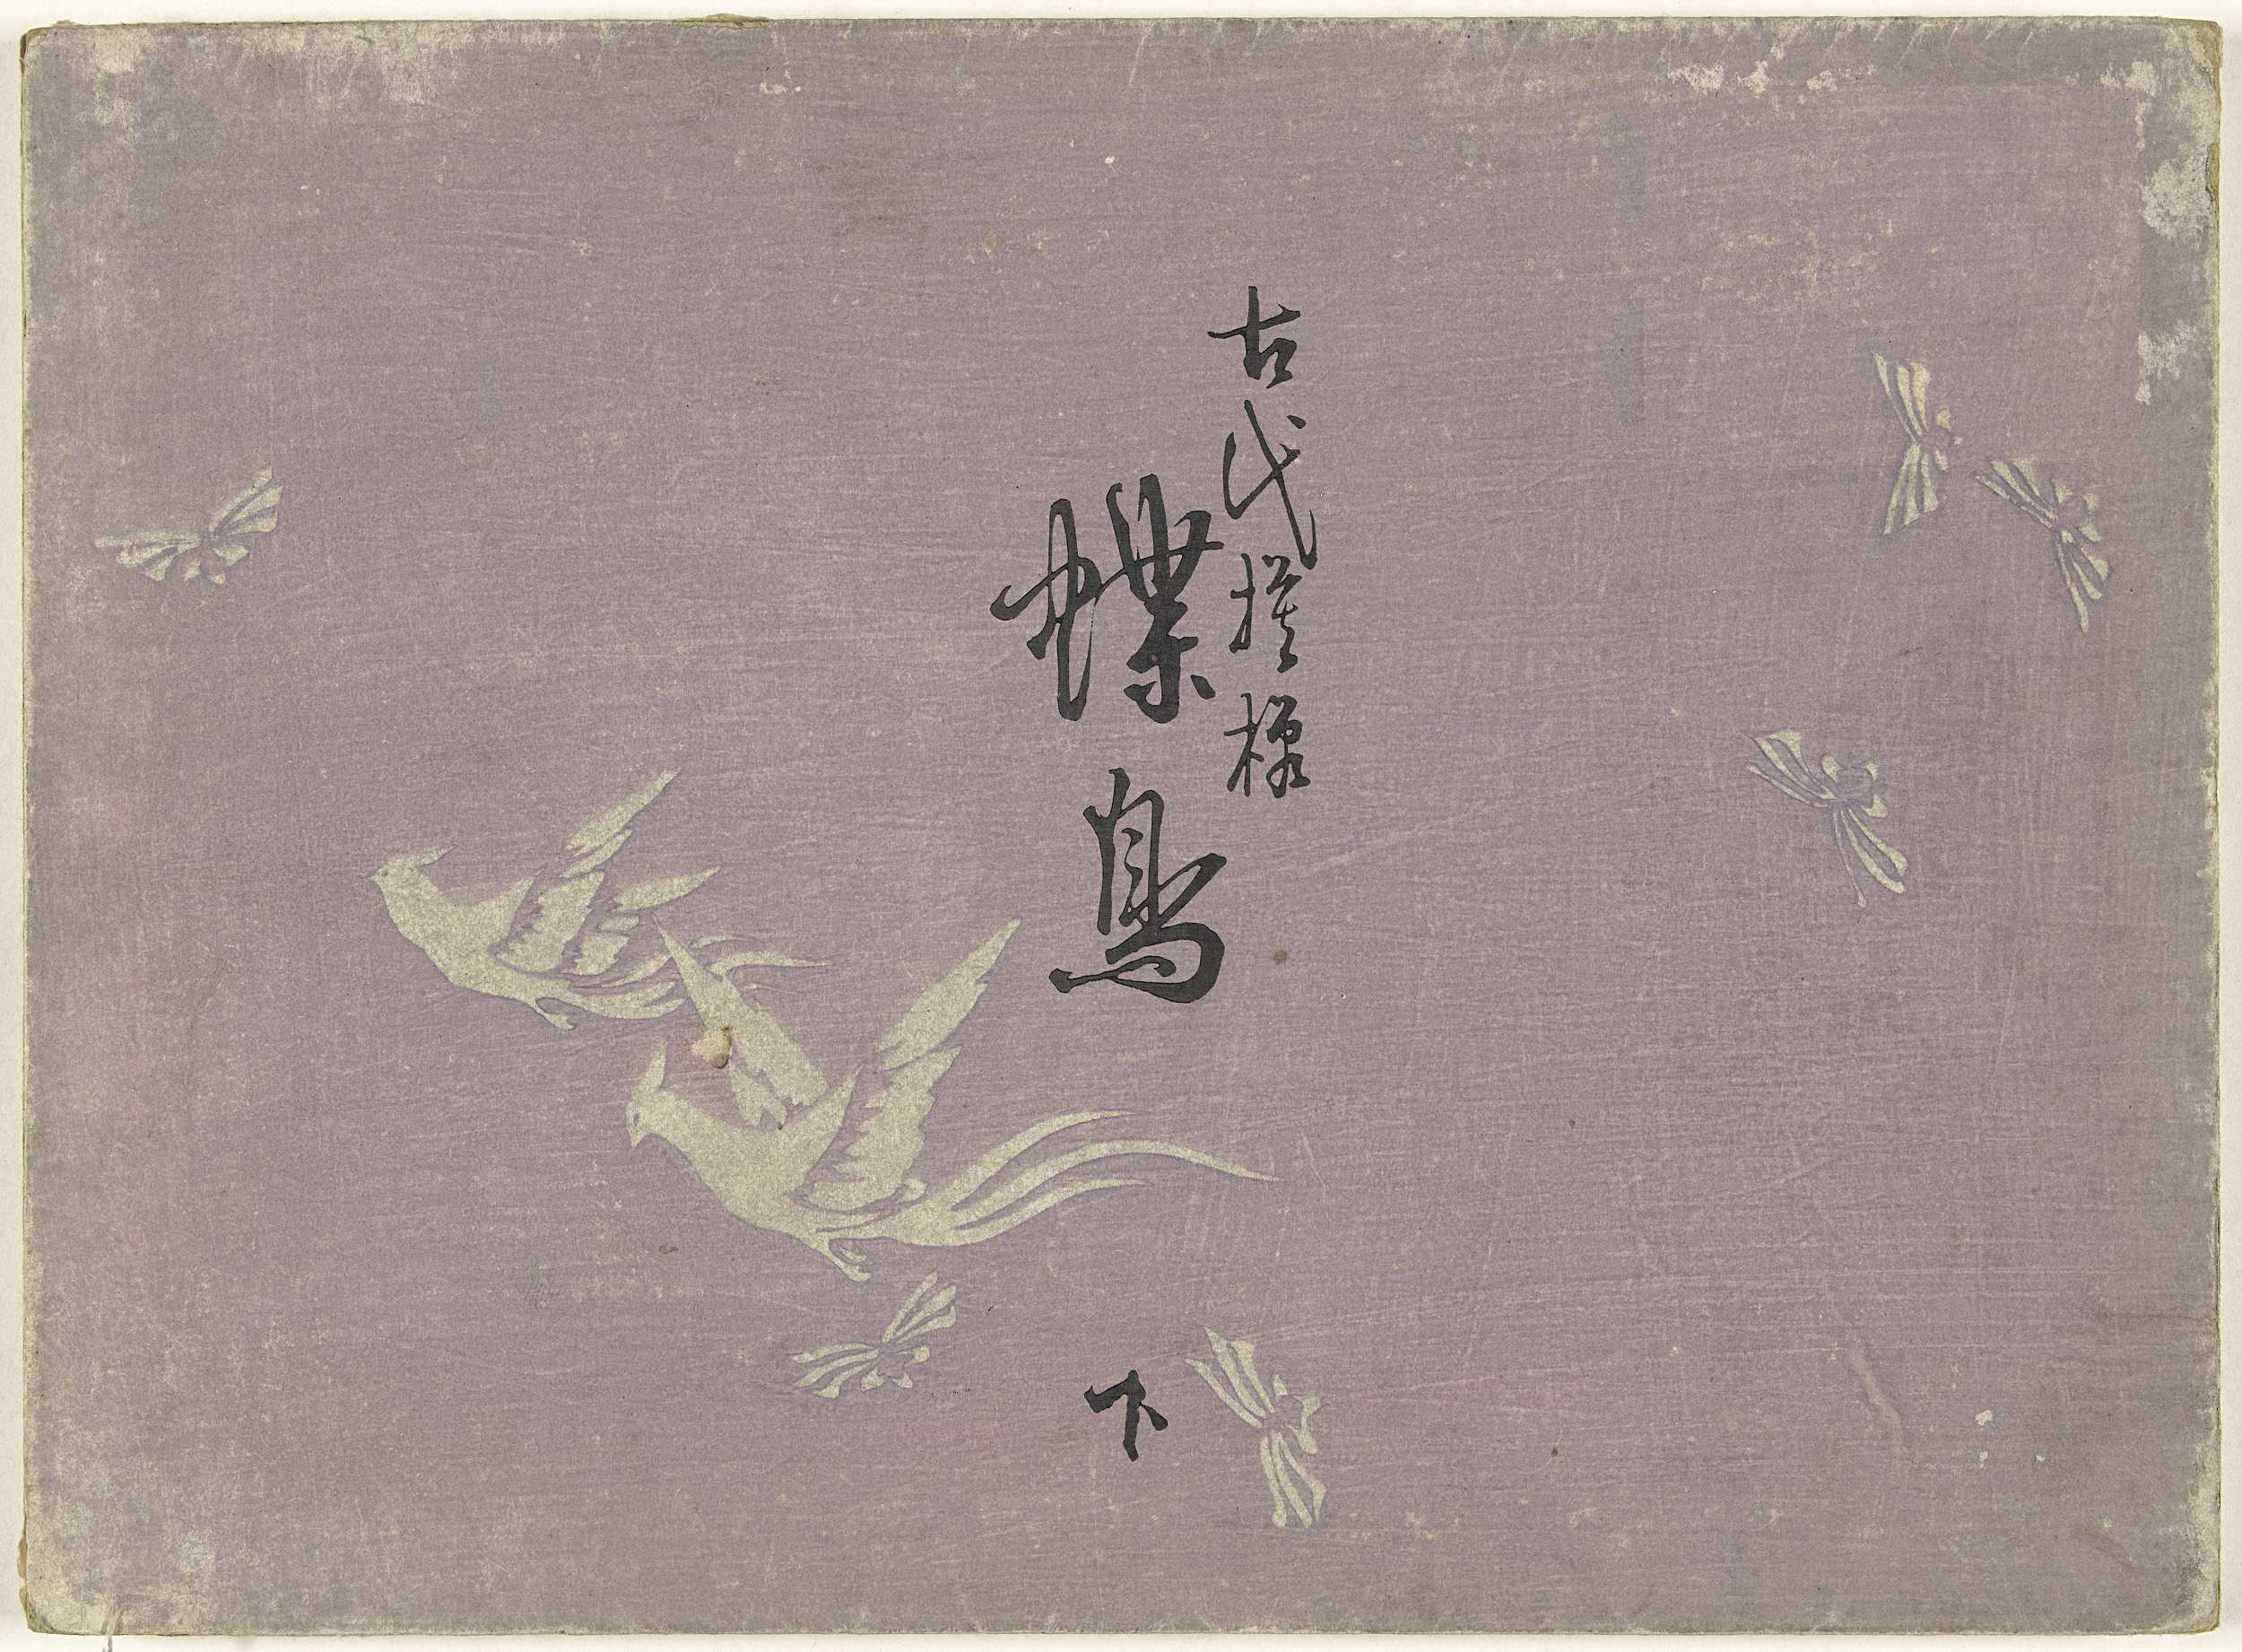 古代模様
蝶鳥
下